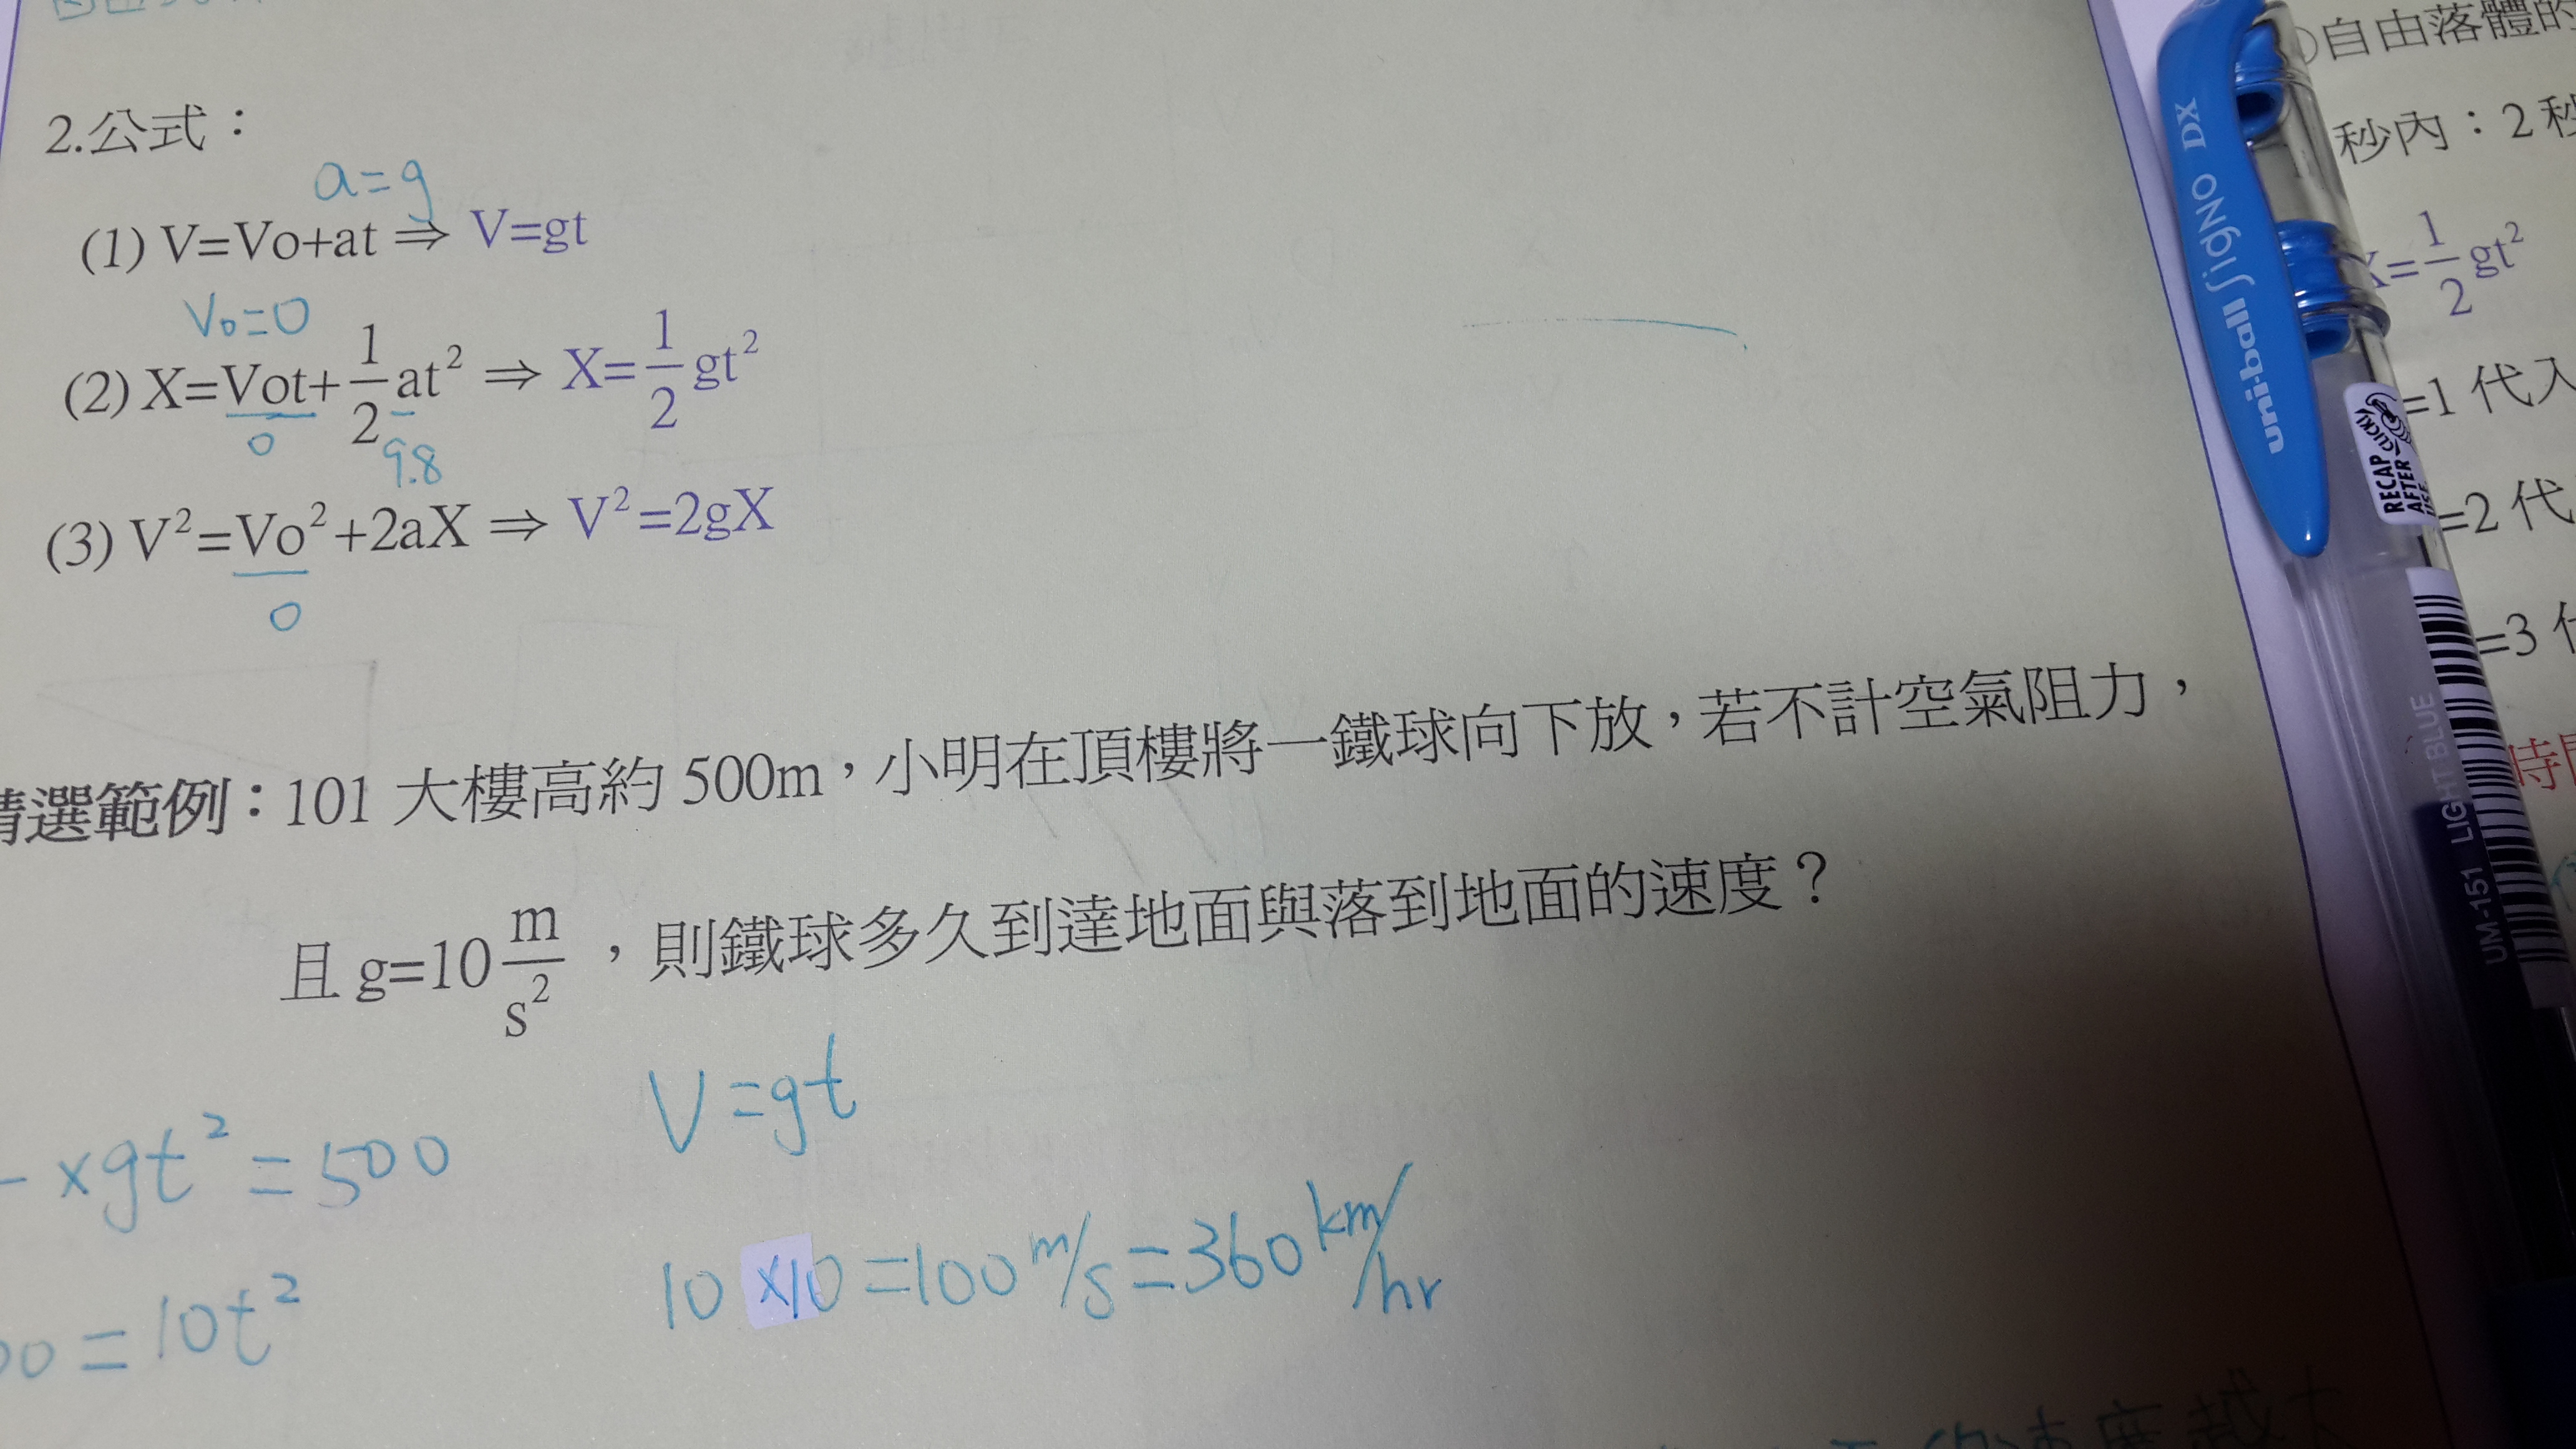 2.公式：
a=g
(1) V=Vo+at ⇒ V=gt
V₀=0
(2) X=Vot+1/2at² ⇒ X=1/2gt²
0
9.8
(3) V²=Vo²+2aX ⇒ V²=2gX
0
精選範例：101 大樓高約 500m，小明在頂樓將一鐵球向下放，若不計空氣阻力，
且 g=10 m/s²，則鐵球多久到達地面與落到地面的速度？
V=gt
×gt²=500
10×10=100 m/s=360 km/hr
00=10t²
自由落體的
秒內：2 秒
X=1/2gt²
=1 代入
=2 代
=3 代
時間
uni-ball SigNO DX
RECAP AFTER USE
CLICK!
UM-151 LIGHT BLUE
的速度越大